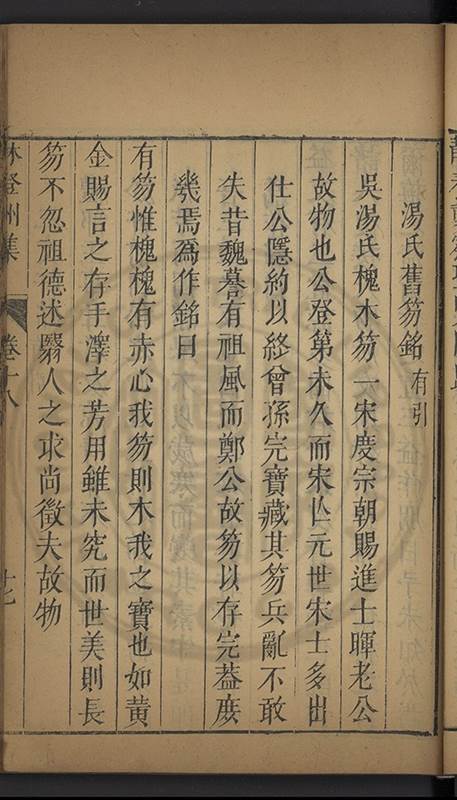 湯氏舊笏銘有引
吳湯氏槐木笏一宋慶宗朝賜進士暉老公
故物也公登第未久而宋亾元世宋士多出
仕公隱約以終曾孫完寶藏其笏兵亂不敢
失昔魏謩有祖風而鄭公故笏以存完葢庶
幾焉爲作銘曰
有笏惟槐槐有赤心我笏則木我之寶也如黃
金賜言之存手澤之芳用雖未究而世美則長
笏不忍祖德述翳人之求尚徵夫故物
林登州集 卷十八 廿七